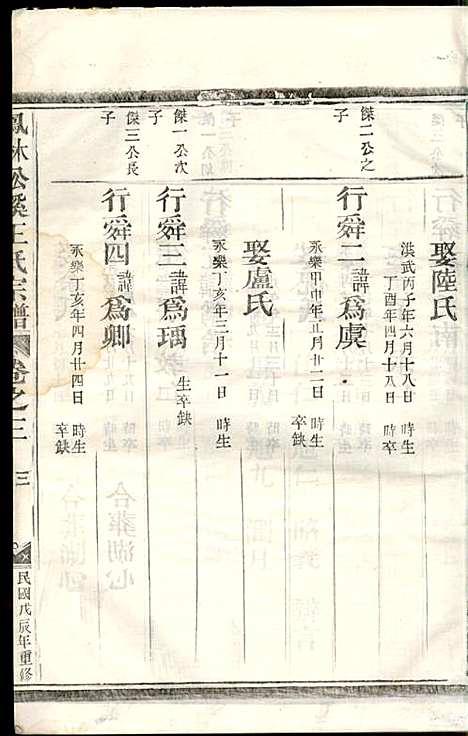 娶陸氏
洪武丙子年六月十八日 時生
丁酉年四月十八 時卒
傑二公之
子
行舜二諱爲虞
永樂甲申年正月廿二日 時生
卒缺
娶盧氏
永樂丁亥年三月十一日 時生
卒缺
傑一公次
子
行舜三諱爲瑀
生卒缺
傑三公長
子
行舜四諱爲卿
永樂丁亥年四月廿四日 時生
卒缺
鳳林松溪王氏宗譜 卷之三 三
民國戊辰年重修